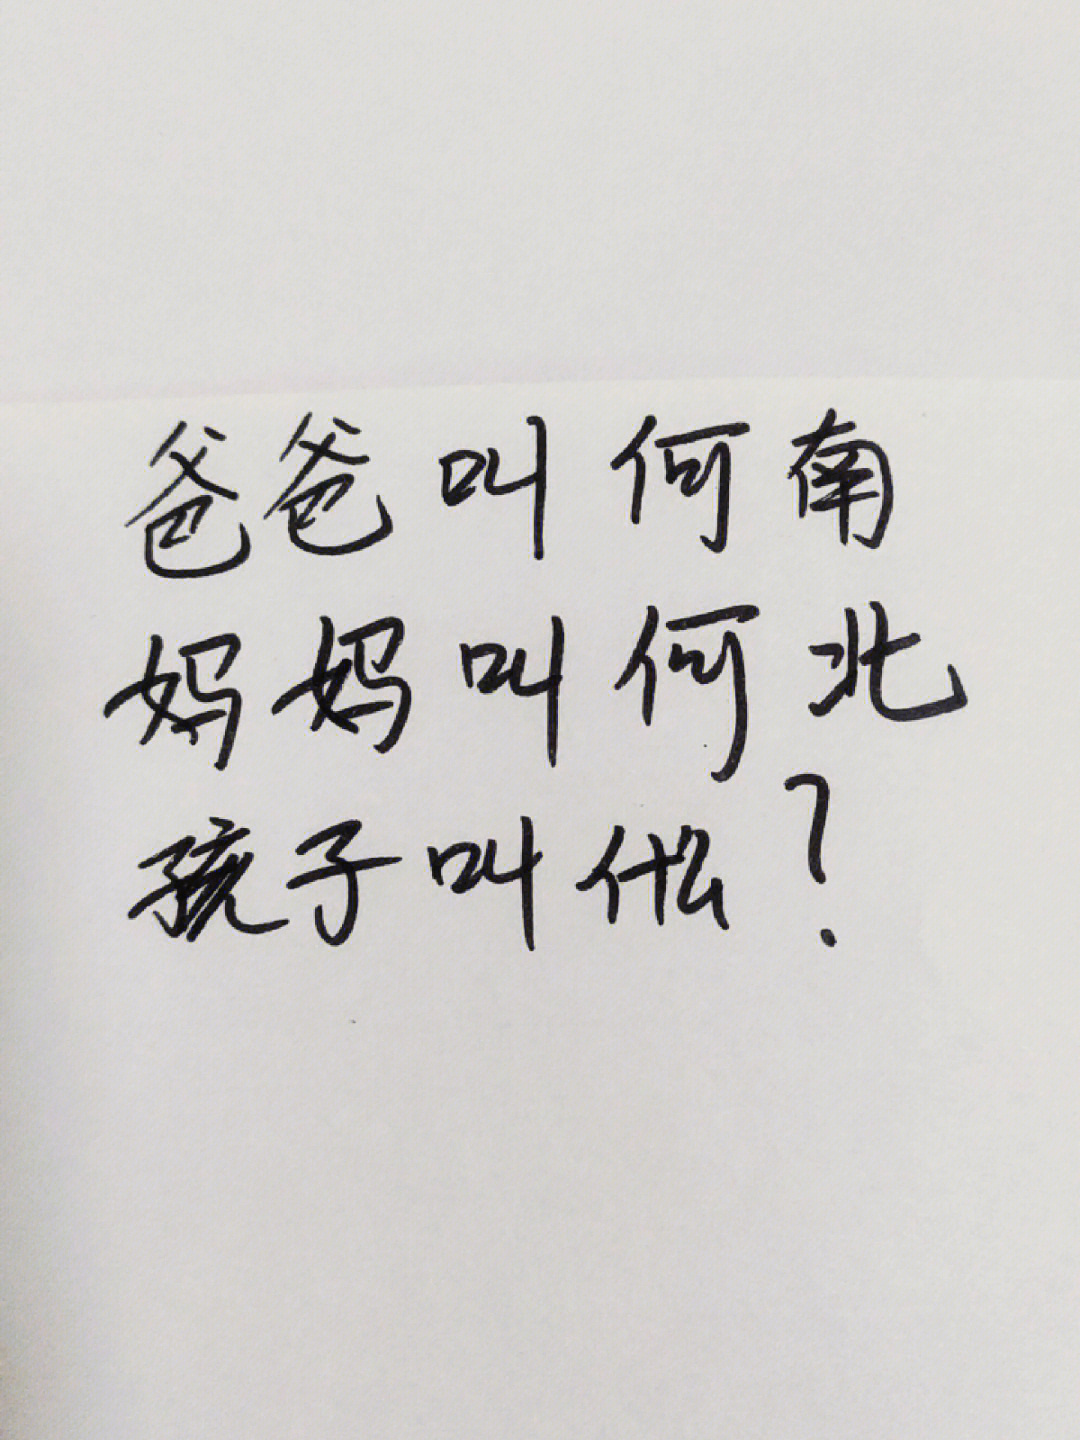 爸爸叫何南
妈妈叫何北
孩子叫什么?